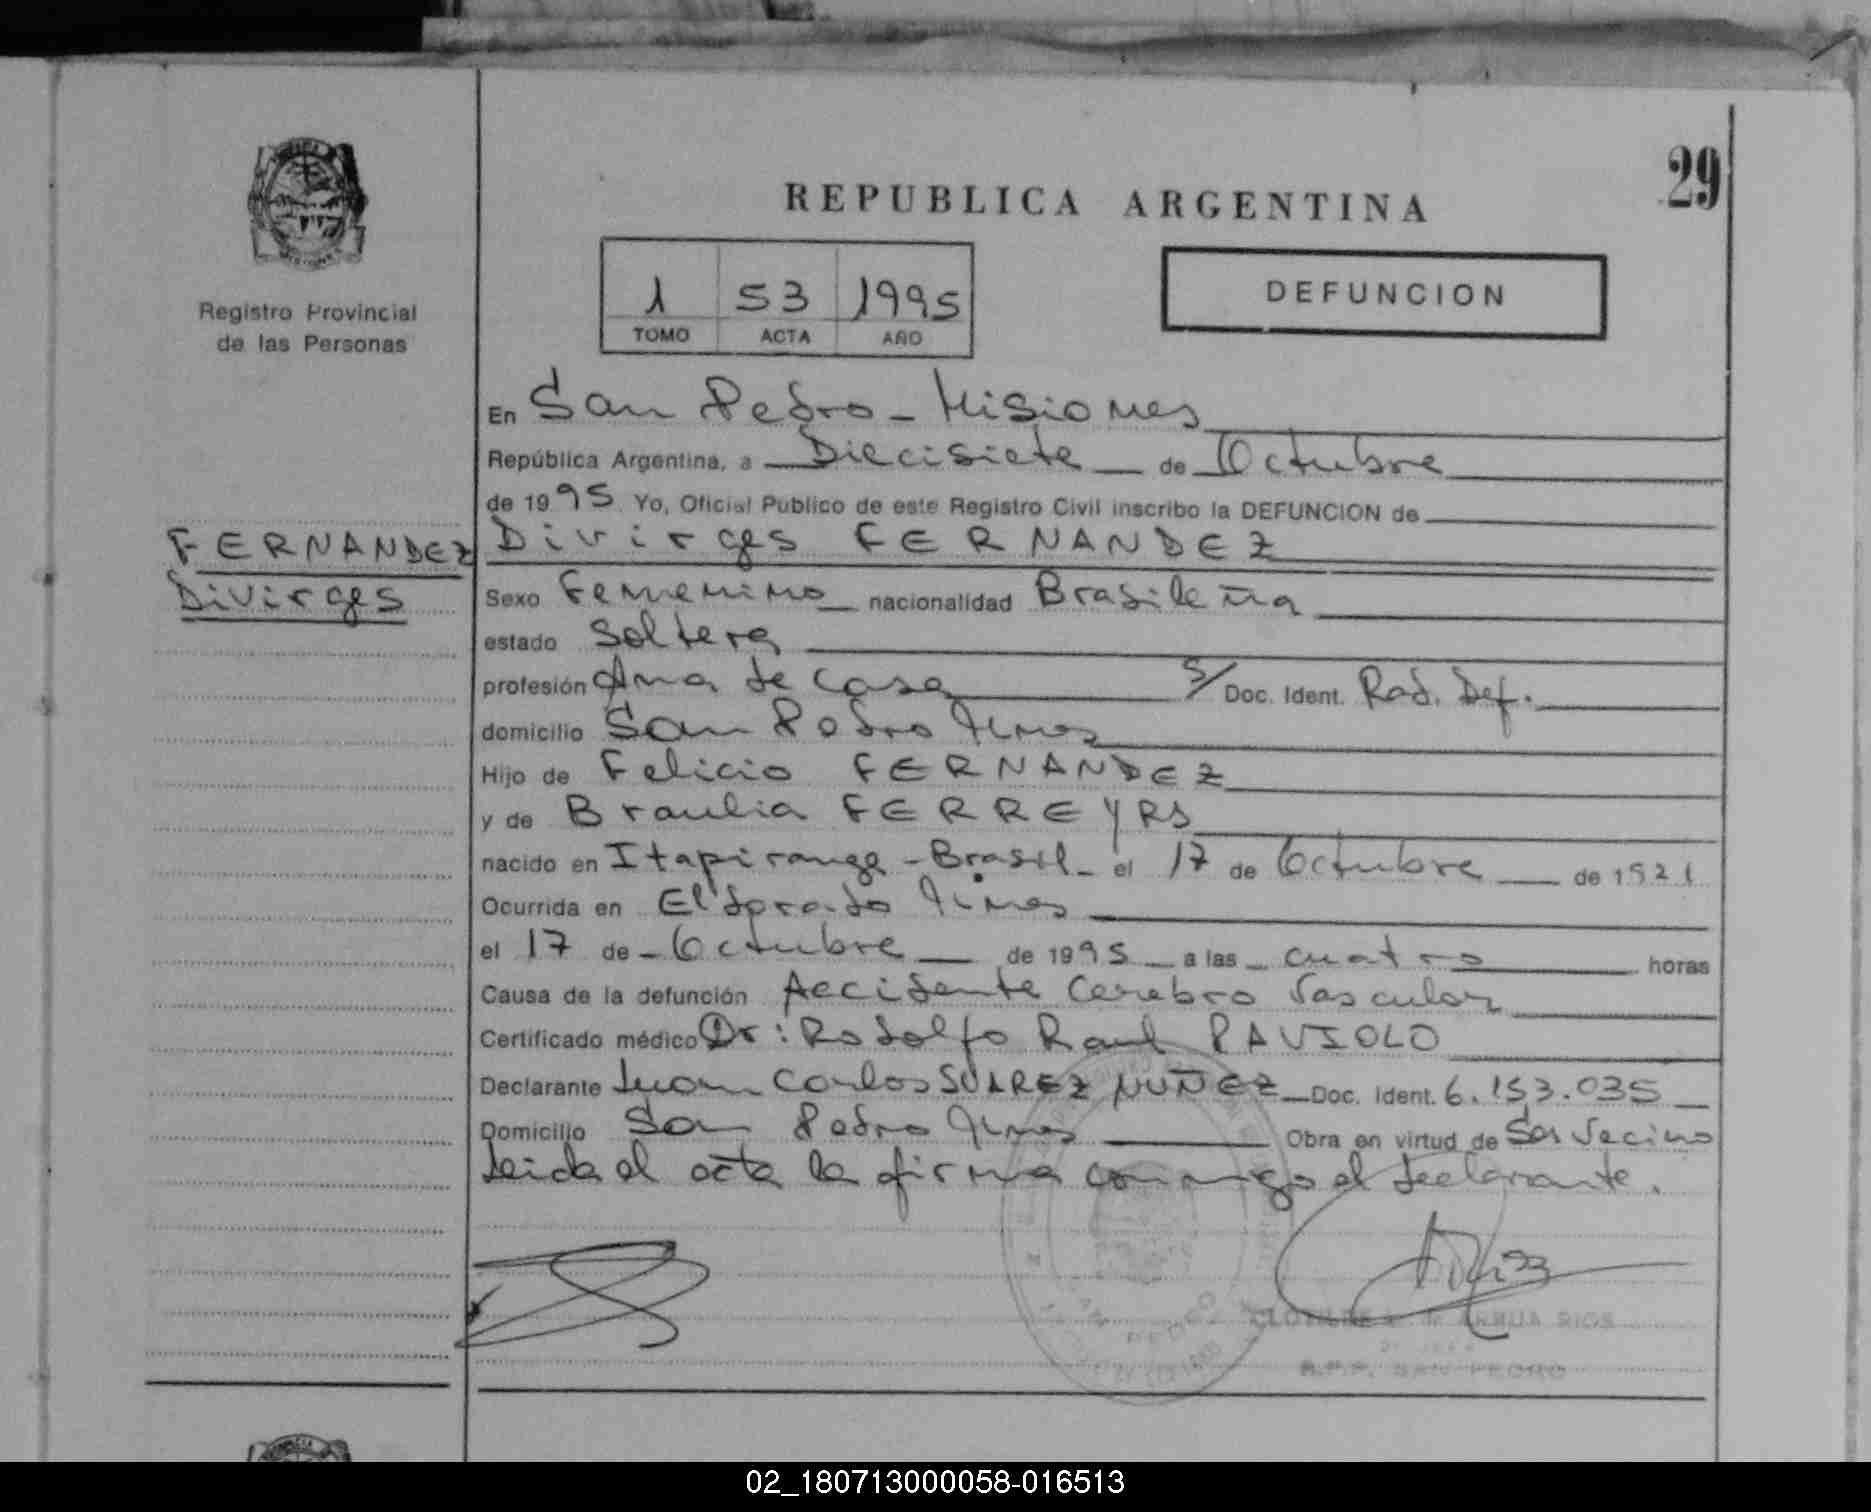 29
REPUBLICA ARGENTINA
Registro Provincial
de las Personas
1 53 1995
TOMO ACTA AÑO
DEFUNCION
FERNANDEZ
Divirges
En San Pedro - Misiones
República Argentina, a Diecisiete de Octubre
de 1995 Yo, Oficial Publico de este Registro Civil inscribo la DEFUNCION de
Divirges FERNANDEZ
Sexo Femenino nacionalidad Brasileña
estado Soltera
profesión Ama de casa S/ Doc. Ident. Rad. Def.
domicilio San Pedro Mnes
Hijo de Felicio FERNANDEZ
y de Braulia FERREYRA
nacido en Itapiranga - Brasil - el 17 de Octubre de 1921
Ocurrida en Eldorado Mnes
el 17 de - Octubre de 1995 a las cuatro horas
Causa de la defunción Accidente Cerebro Vascular
Certificado médico Dr: Rodolfo Raul PAVIOLO
Declarante Juan Carlos SUAREZ NUÑEZ Doc. Ident. 6.153.035
Domicilio San Pedro Mnes Obra en virtud de Ser Vecino
Leida el acta la firma conmigo el declarante.
de ARRUA RIOS
R.P.P. SAN PEDRO
02_180713000058-016513